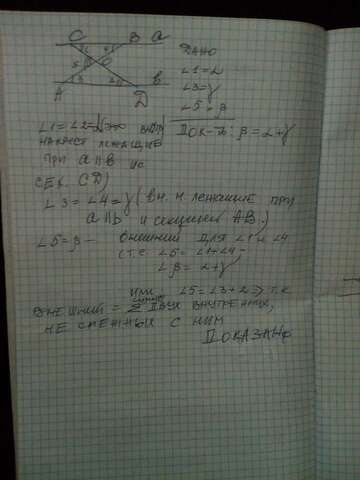 C B a
O
A D b
ДАНО
∠1=α
∠3=γ
∠5=β
ДОК-ТЬ: β=α+γ
∠1=∠2=α внутр
накрест лежащие
при a∥b и
сек. CD)
∠3=∠4=γ (вн. н лежащие при
a∥b и секущей AB.)
∠5=β – внешний для ∠1 и ∠4
(т.е ∠5=∠1+∠4
∠β=α+γ
или ∠5=∠3+2 т.к
сумме
внешний = Σ двух внутренних,
не смежных с ним
ДОКАЗАНО